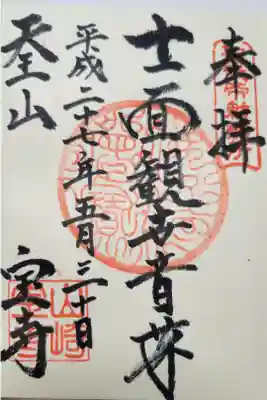 奉拝
十一面観世音
平成二十七年五月三十日
天王山
宝寺